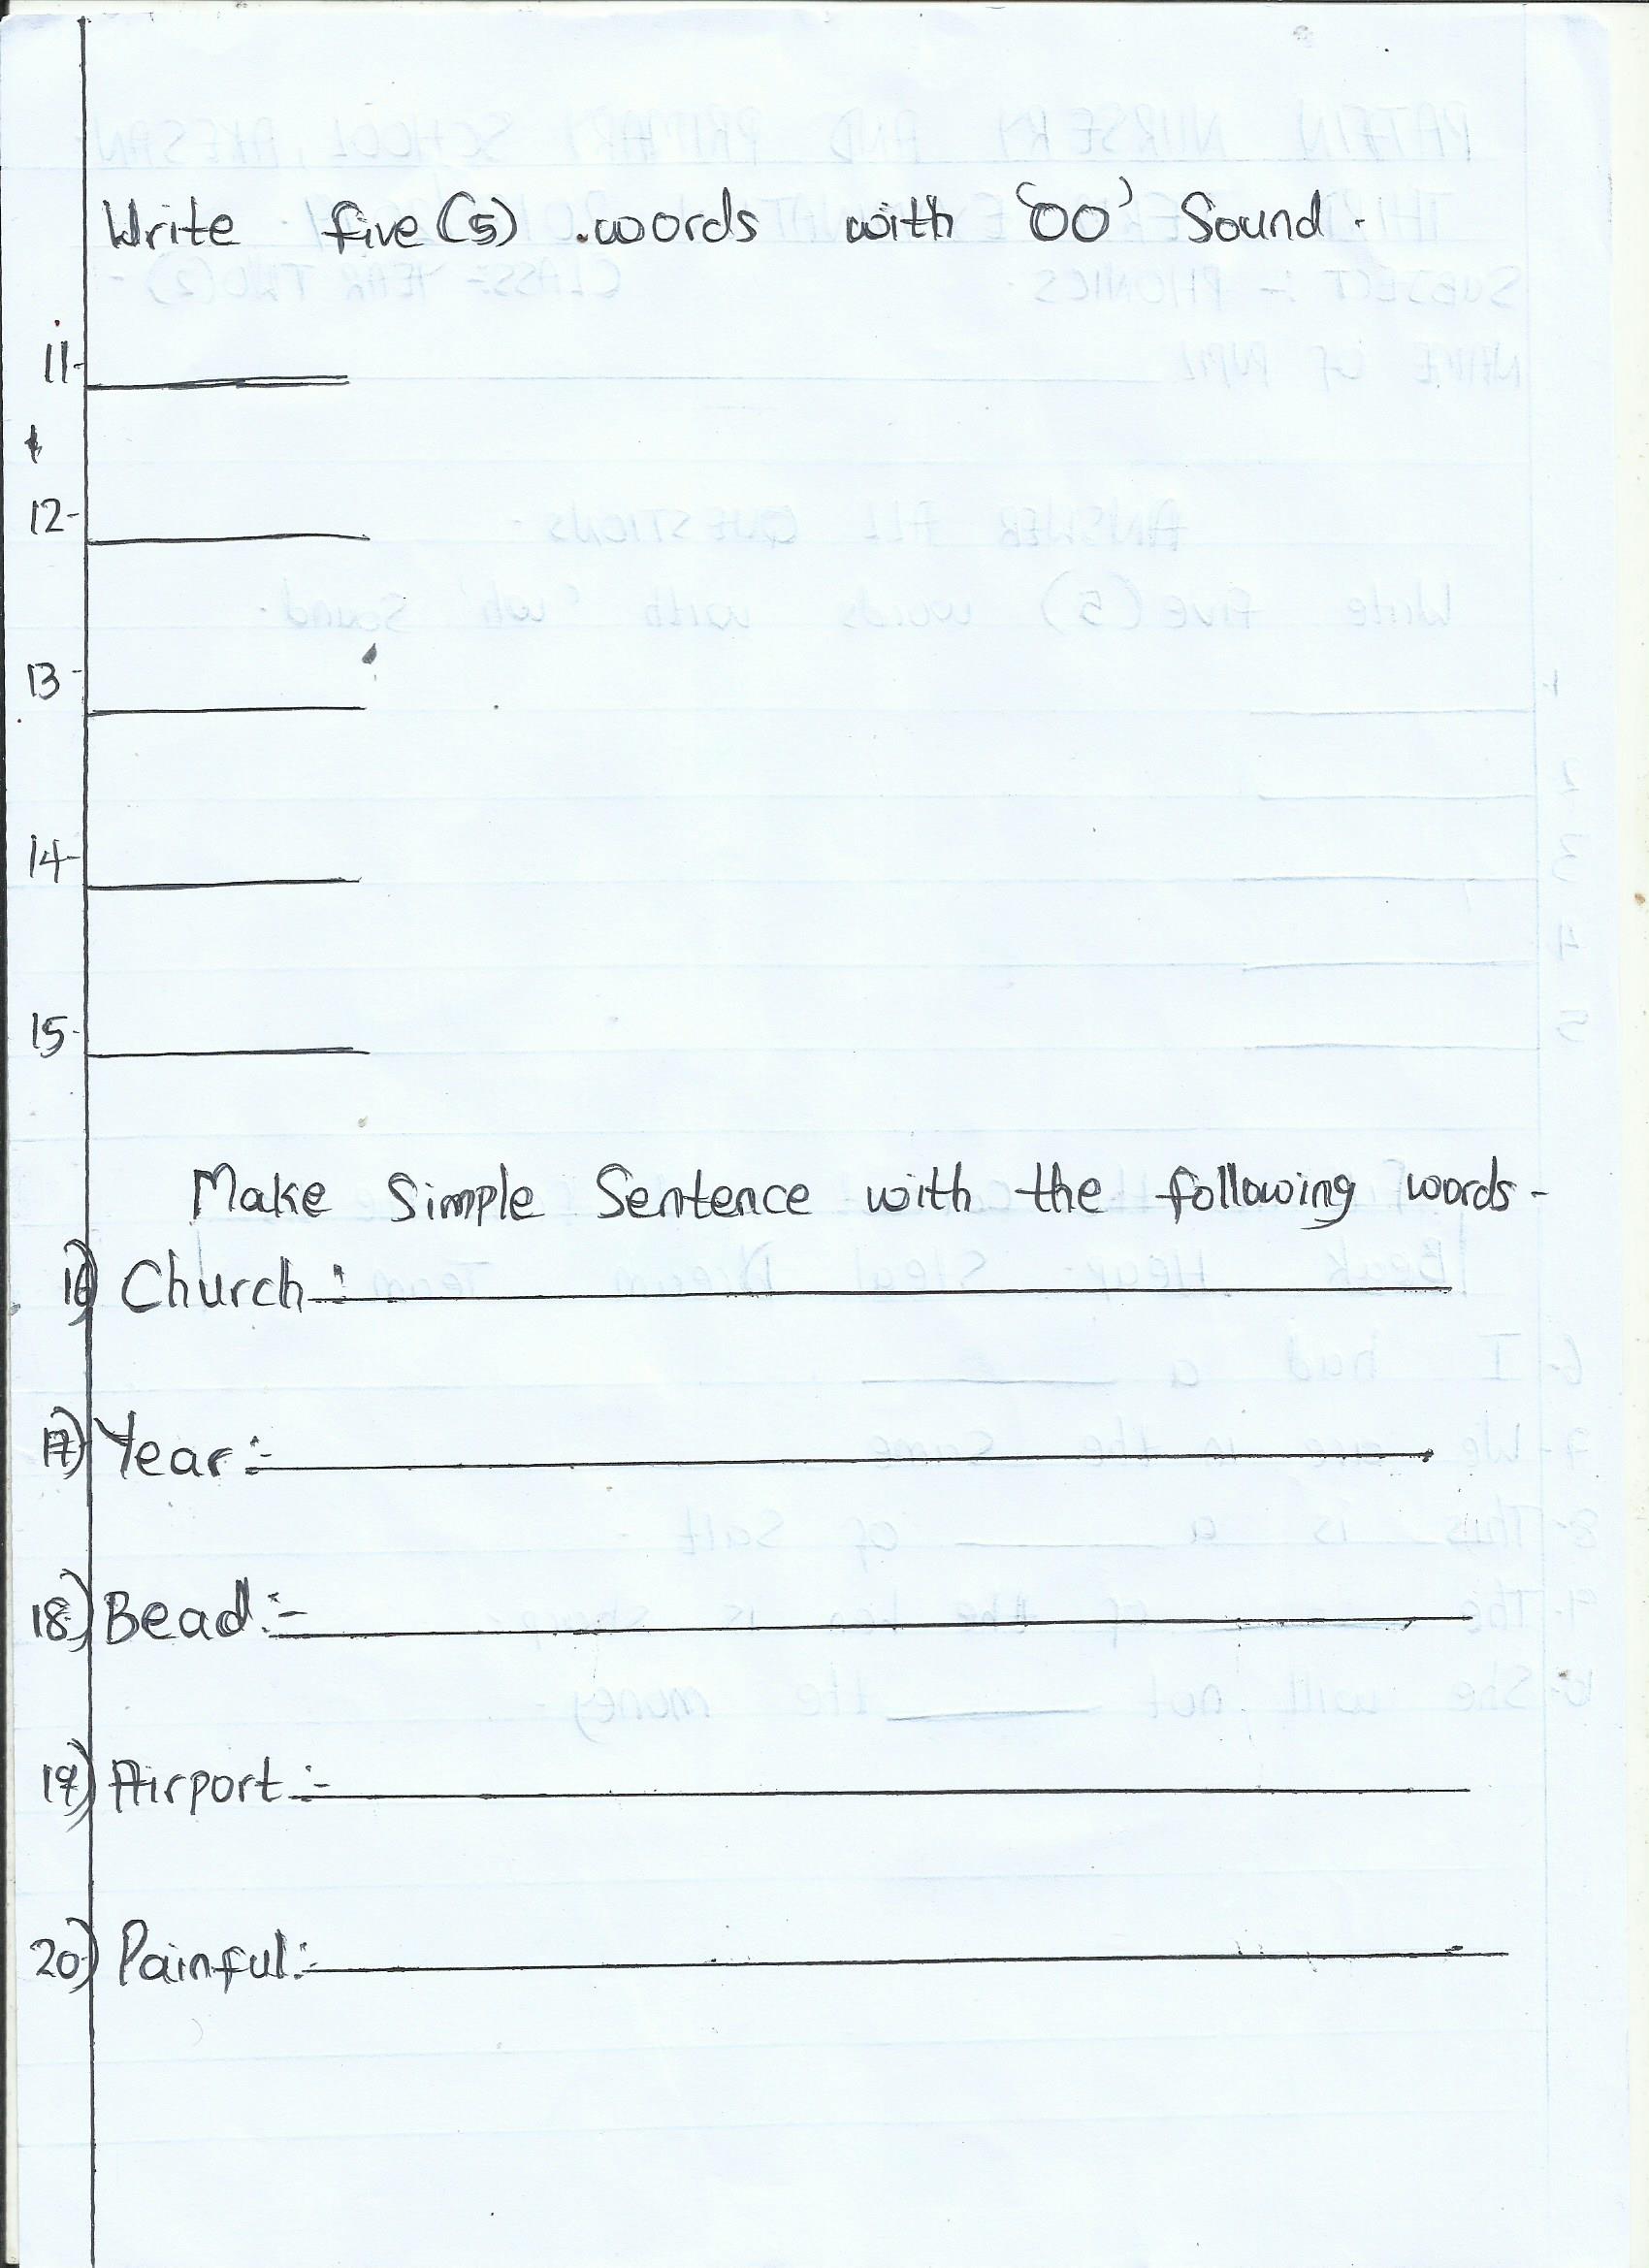 Write five (5) .words with 'oo' Sound.
11-
12-
13-
14-
15-
Make Simple Sentence with the following words-
16) Church :-
17) Year :-
18) Bead :-
19) Airport :-
20) Painful :-